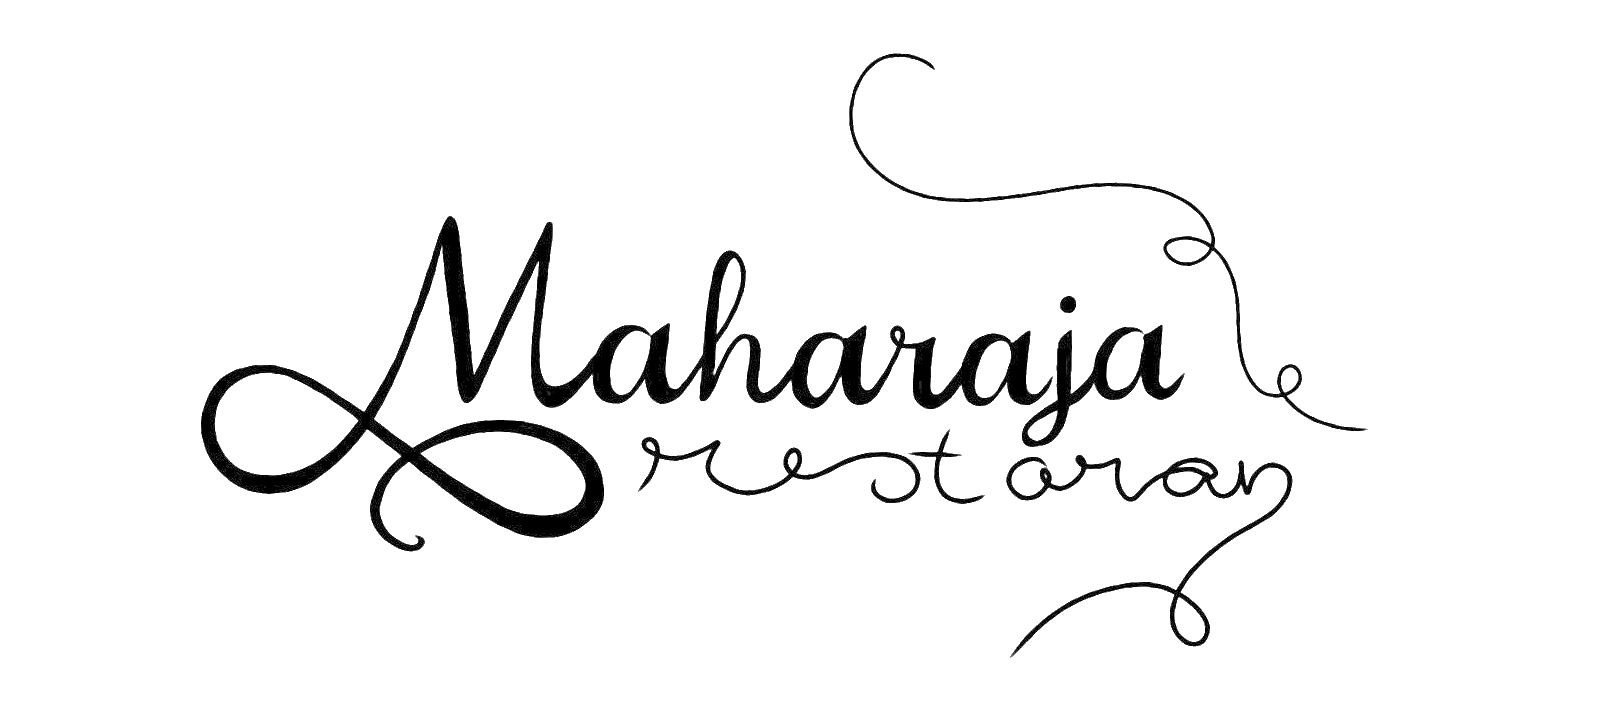 Maharaja
restoran